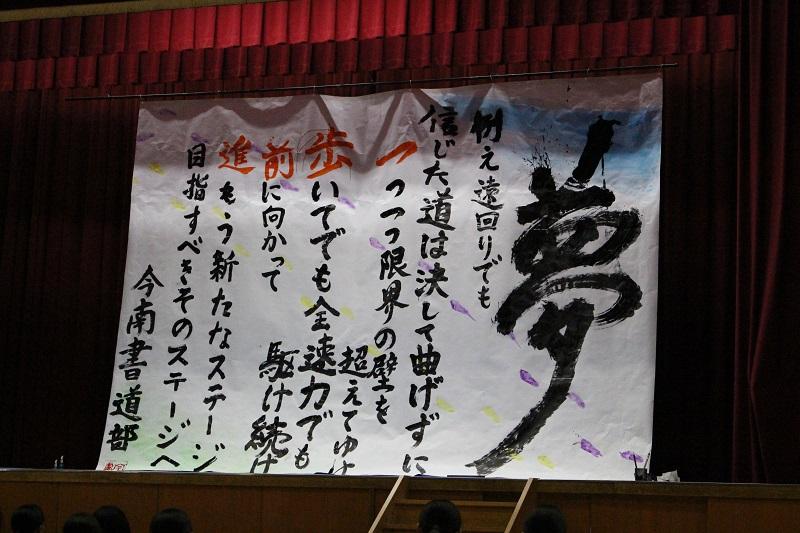 夢
例え遠回りでも
信じた道は決して曲げずに
一つつつ限界の壁を
超えてゆけ
歩いてでも全速力でも
前に向かって 駆け続け
進もう新たなステージ
目指すべきそのステージへ
今南書道部